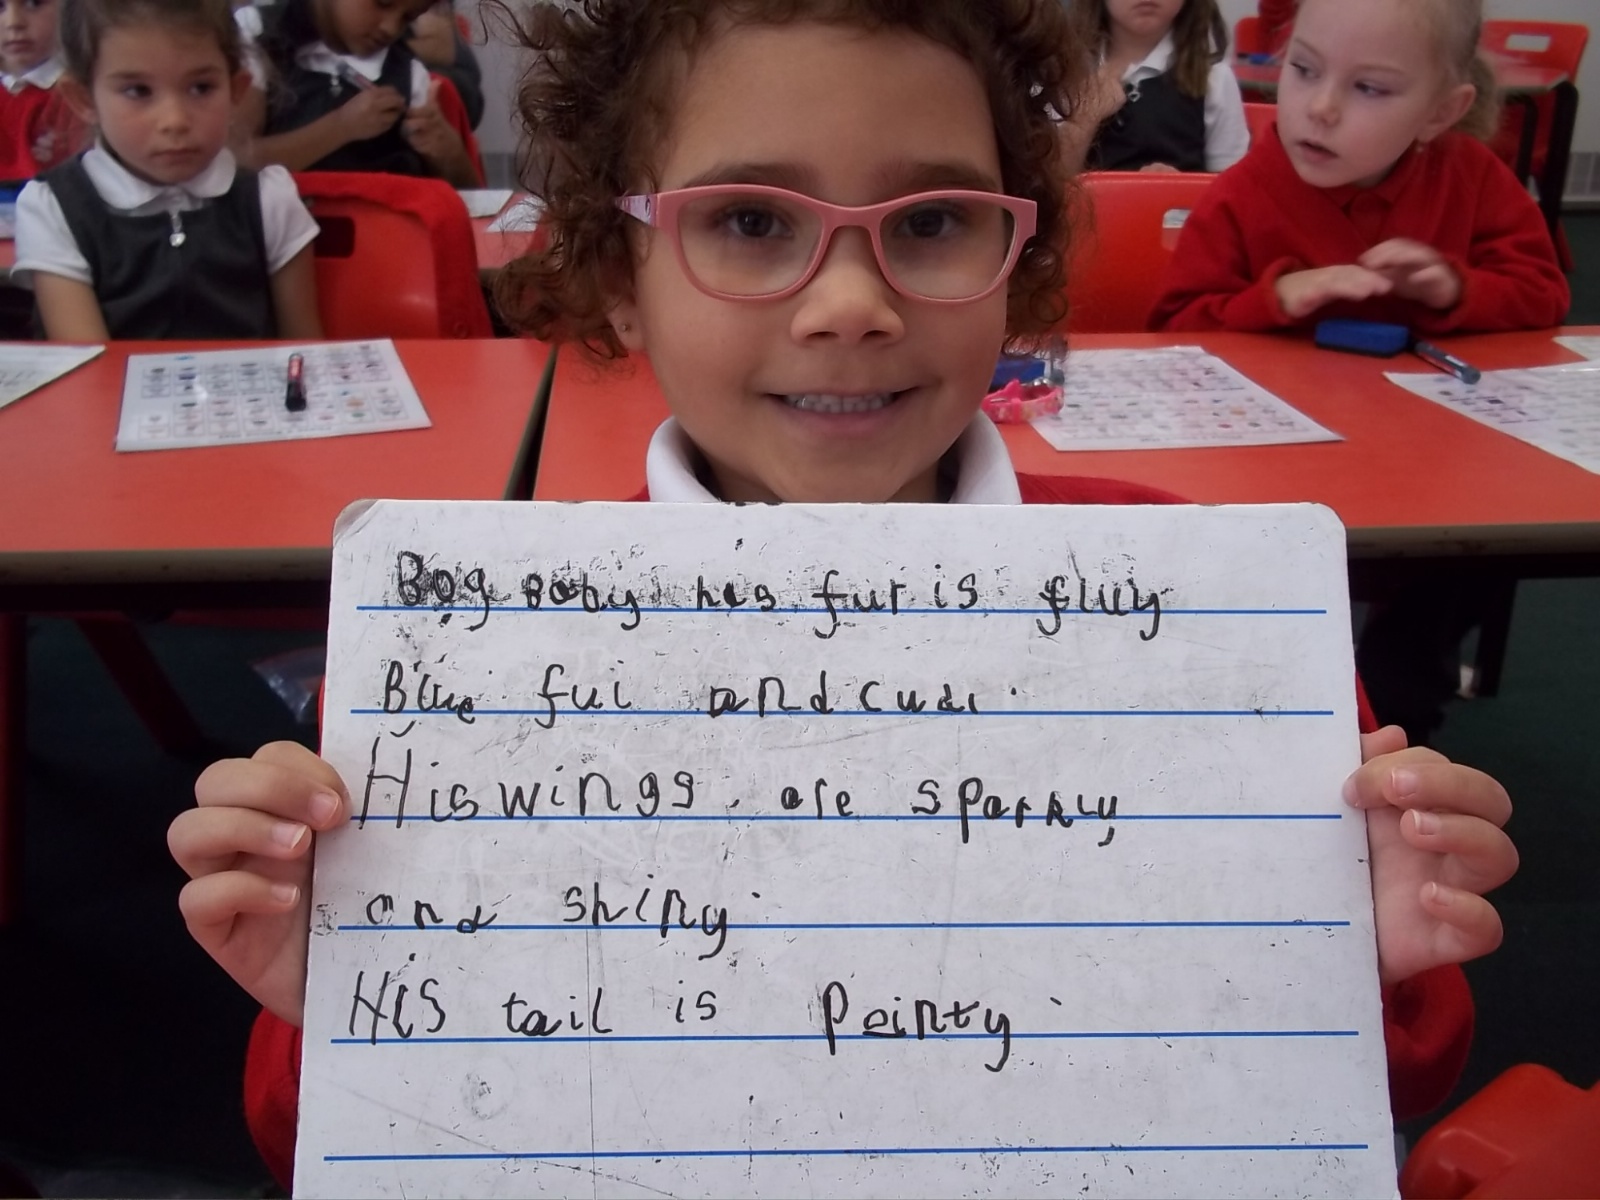 Bog Baby has fur is fluiy
Blue fui and cudl.
His wings. are sparkly
and shiny.
His tail is Pointy.